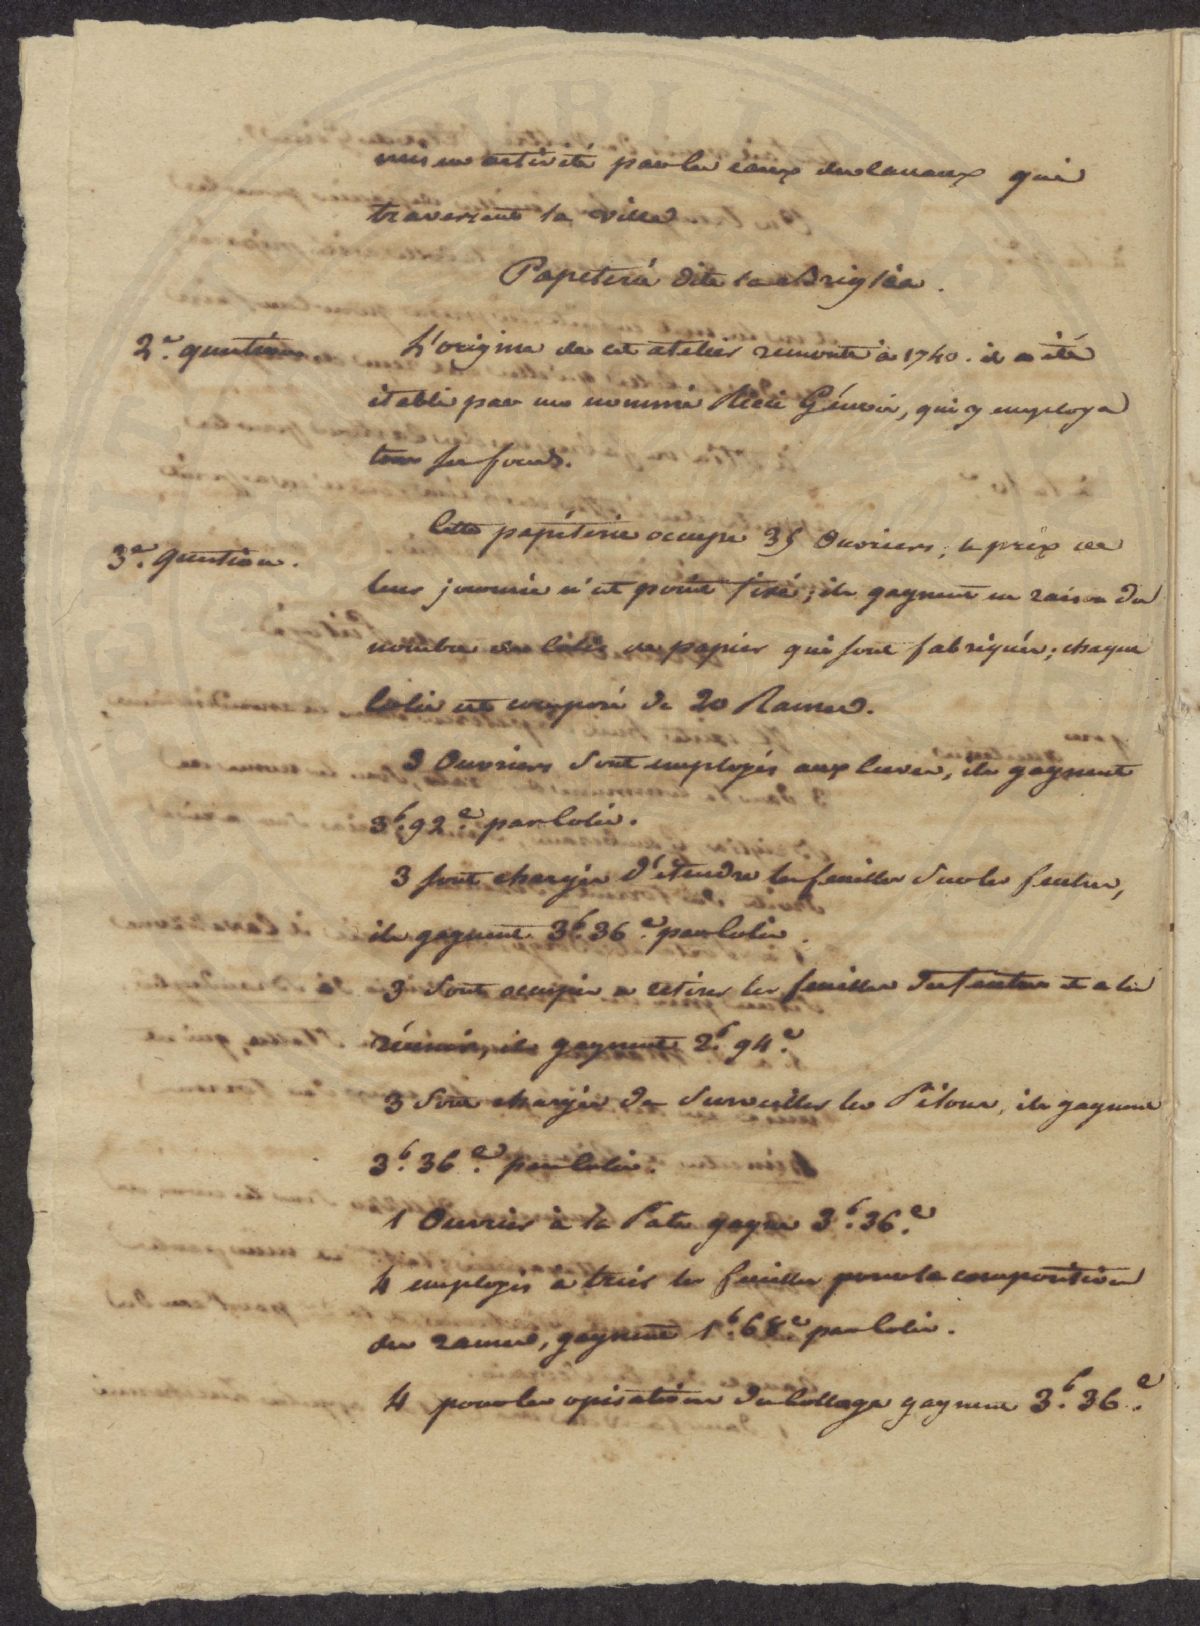 mis en activité par les eaux des canaux qui
traversent la ville
Papeterie dite la Briglia.
2.e question
L'origine de cet atelier remonte à 1740. il a été
établi par un nommé Génois, qui y employa
tous ses fonds.
3.e question.
Cette papéterie occupe 35 Ouvriers, le prix de
leur journée n'est point fixé; ils gagnent en raison du
nombre de Colis de papier qui sont fabriqués; chaque
Colis est composé de 20 Rames.
3 Ouvriers sont employés aux cuves, ils gagnent
3f. 92c. par Colis.
3 sont chargés d'étendre les feuilles sur les feutres,
ils gagnent 3f. 36c. par Colis.
3 sont occupés a retirer les feuilles des feutres et a les
réunir, ils gagnent 2f. 94c.
3 sont chargés de surveiller les Pilons, ils gagnent
3f. 36c. par Colis.
1 Ouvrier à la Pate gagne 3f. 36c.
4 employés a trier les feuilles pour la composition
des rames, gagnent 1f. 68c par Colis.
4 pour les opérations du Collage gagnent 3f. 36c.